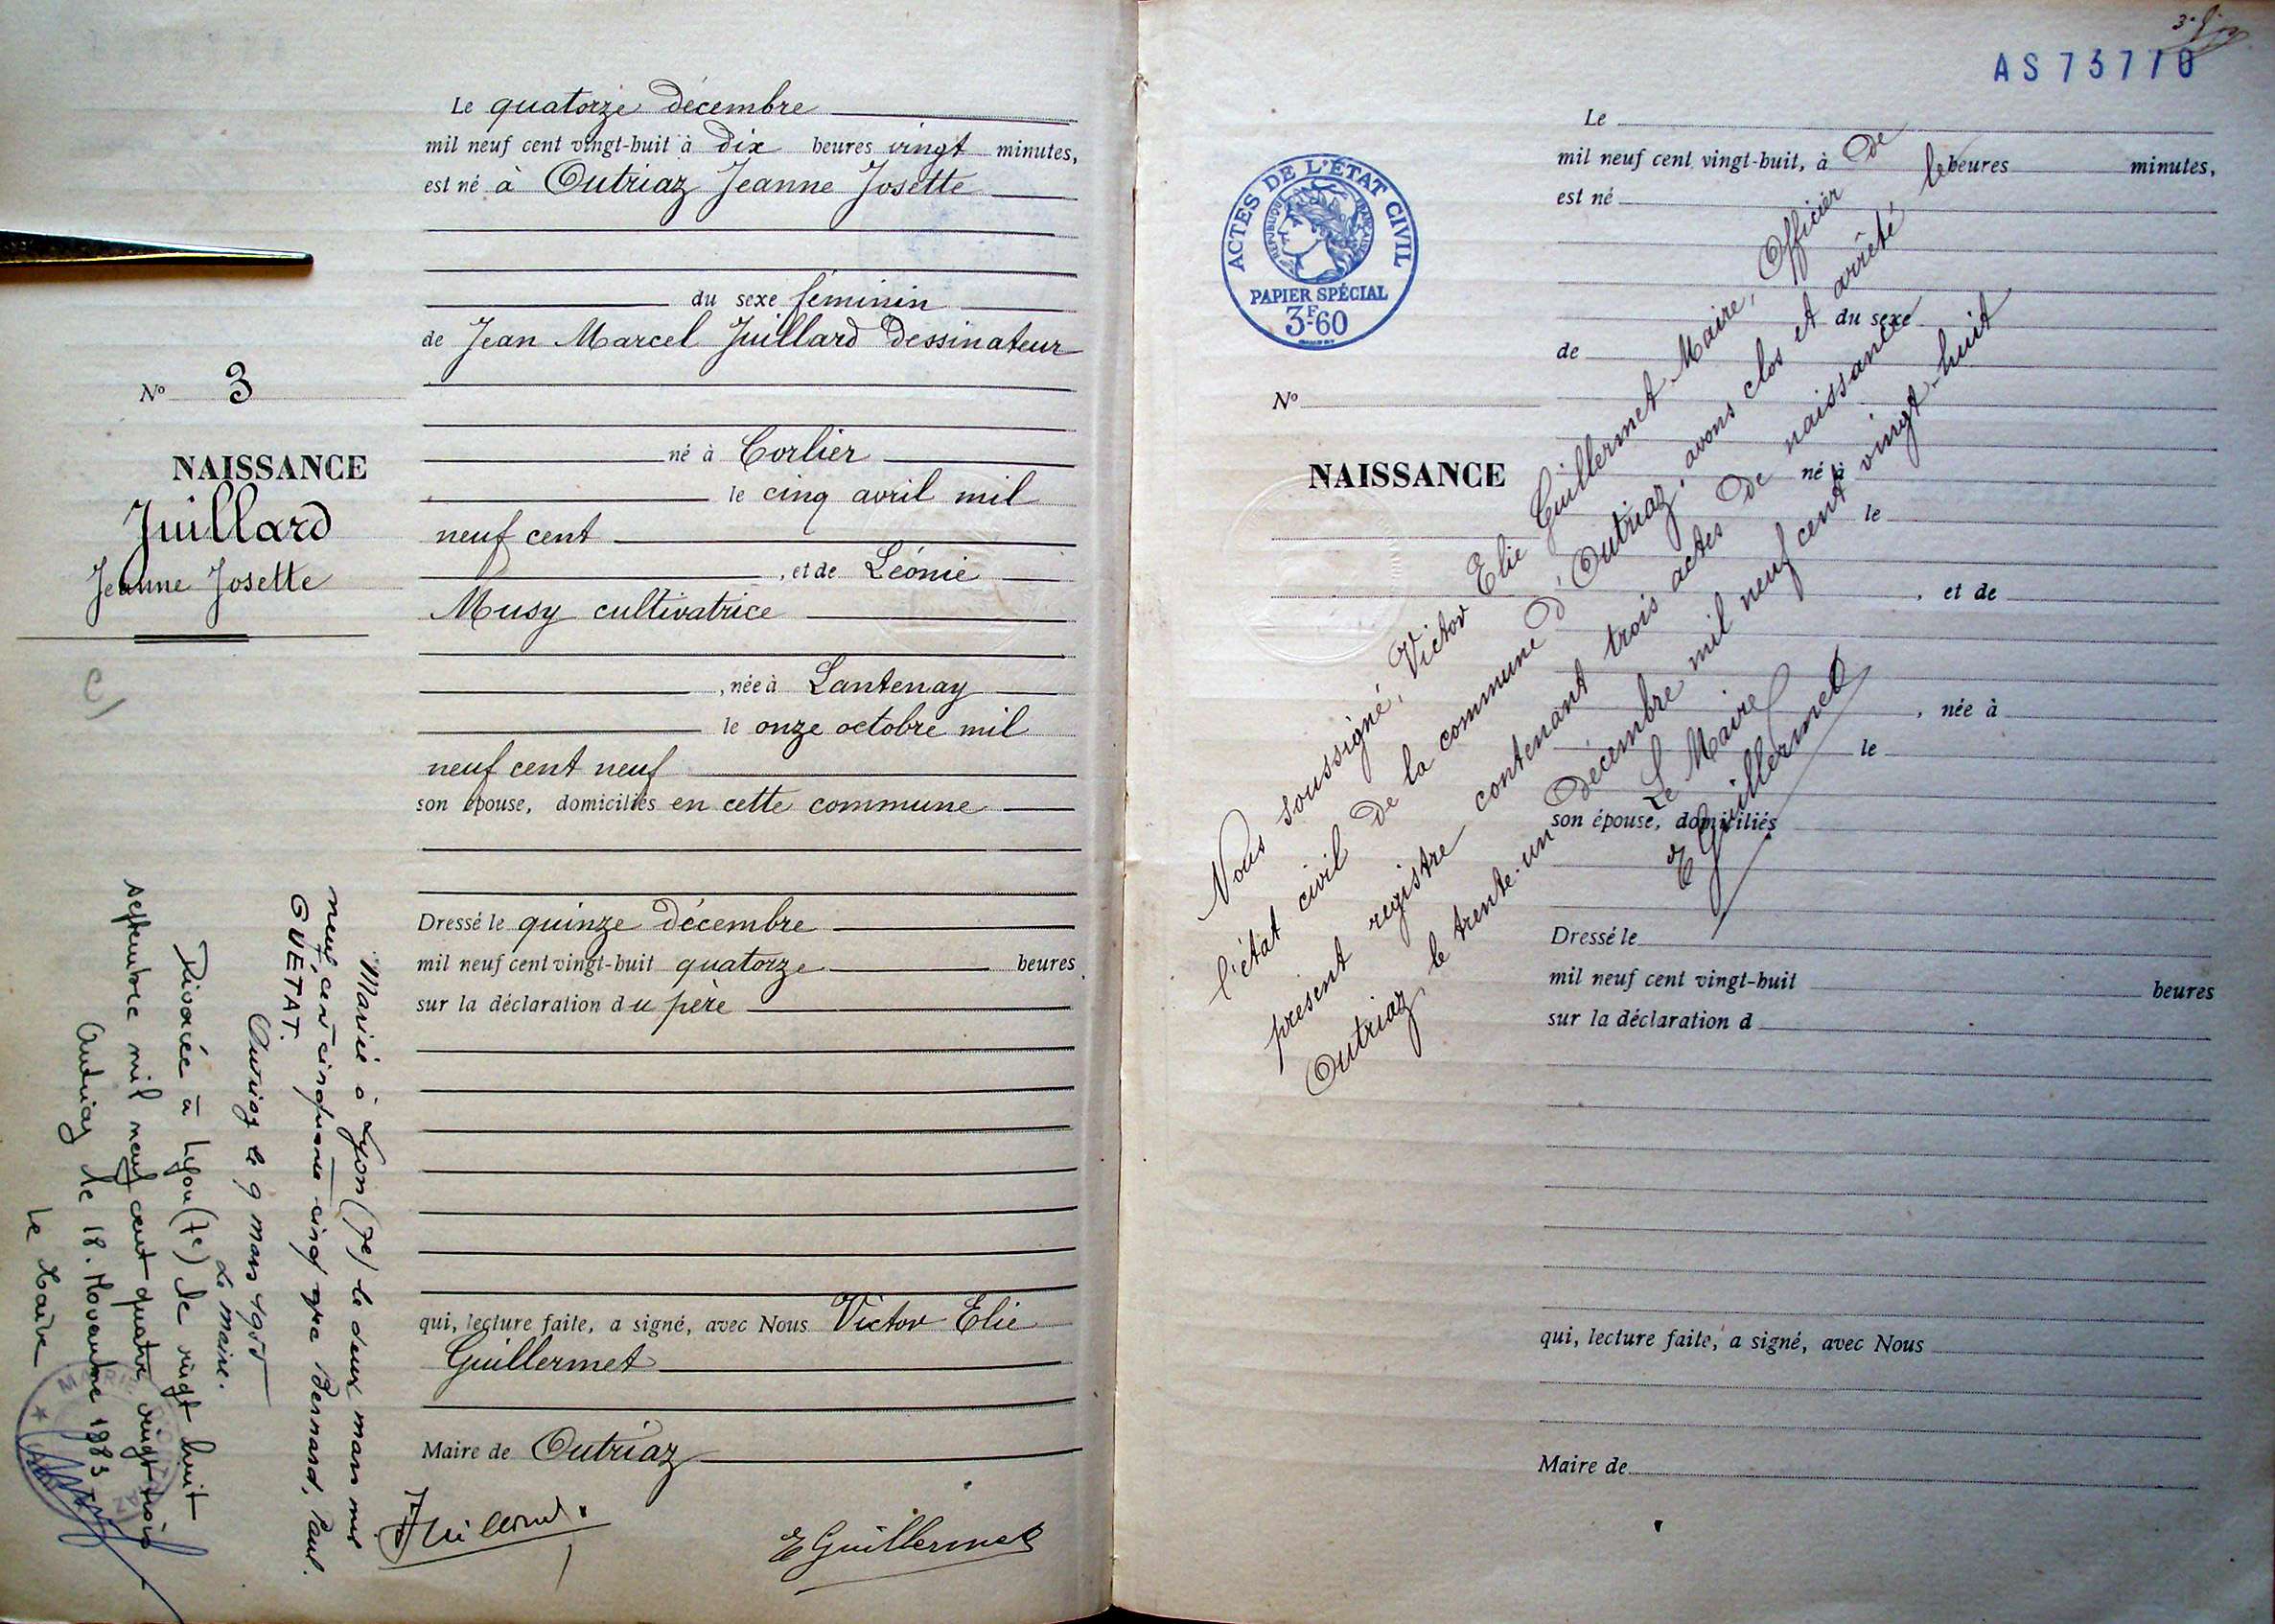 Le quatorze décembre
mil neuf cent vingt-huit à dix heures vingt minutes,
est né à Outriaz Jeanne Josette
du sexe féminin
de Jean Marcel Juillard dessinateur
né à Corlier
le cinq avril mil
neuf cent
, et de Léonie
Musy cultivatrice
, née à Lantenay
le onze octobre mil
neuf cent neuf
son épouse, domiciliés en cette commune
Dressé le quinze décembre
mil neuf cent vingt-huit quatorze heures
sur la déclaration du père
qui, lecture faite, a signé, avec Nous Victor Elie
Guillermet
Maire de Outriaz
Juillard
E Guillermet
No 3
NAISSANCE
Juillard
Jeanne Josette
Mariée à Lyon (7e) le deux mars mil
neuf cent cinquante cinq avec Bernard, Paul
GUÉTAT.
Outriaz le 9 mars 1955
Le maire.
Divorcée à Lyon (7e) le vingt huit
septembre mil neuf cent quatre vingt trois
Outriaz le 18 Novembre 1983
Le Maire
MAIRIE
AS 73770
ACTES DE L'ÉTAT CIVIL
RÉPUBLIQUE FRANÇAISE
PAPIER SPÉCIAL
3F60
No
NAISSANCE
Le
mil neuf cent vingt-huit, à heures minutes,
est né
du sexe
de
né à
le
, et de
, née à
le
son épouse, domiciliés
Dressé le
mil neuf cent vingt-huit heures
sur la déclaration d
qui, lecture faite, a signé, avec Nous
Maire de
Nous soussigné, Victor Elie Guillermet Maire, Officier de
l'état civil de la commune d'Outriaz, avons clos et arrêté le
présent registre contenant trois actes de naissance
Outriaz, le trente-un décembre mil neuf cent vingt-huit
Le Maire
E Guillermet